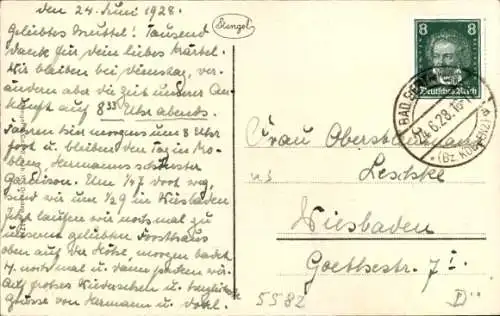 den 24. Juni 1928.
Stengel
Geliebtes Muttel! Tausend
Dank für Dein liebes Kärtel.
Wir bleiben bei Dienstag, ver-
ändern aber die Zeit unserer An-
kunft auf 8 33 Uhr abends.
Fahren hier morgens um 8 Uhr
fort u. bleiben den Tag in Ko-
blenz, Hermanns schönster
Garnison. Um 1/2 7 dort weg,
sind wir um 1/2 9 in Wiesbaden
Jetzt laufen wir noch mal zu
unserm geliebten Forsthaus
oben auf der Höhe, morgen badet
H. noch mal u. dann packen wir.
Auf frohes Wiedersehen u.
Grüsse von Hermann u.
8 8
Deutsches Reich
BAD
24.6.28.
(Bz. KOBLENZ)
Frau Oberst
Leschke
Wiesbaden
Goethestr. 7 I.
5582